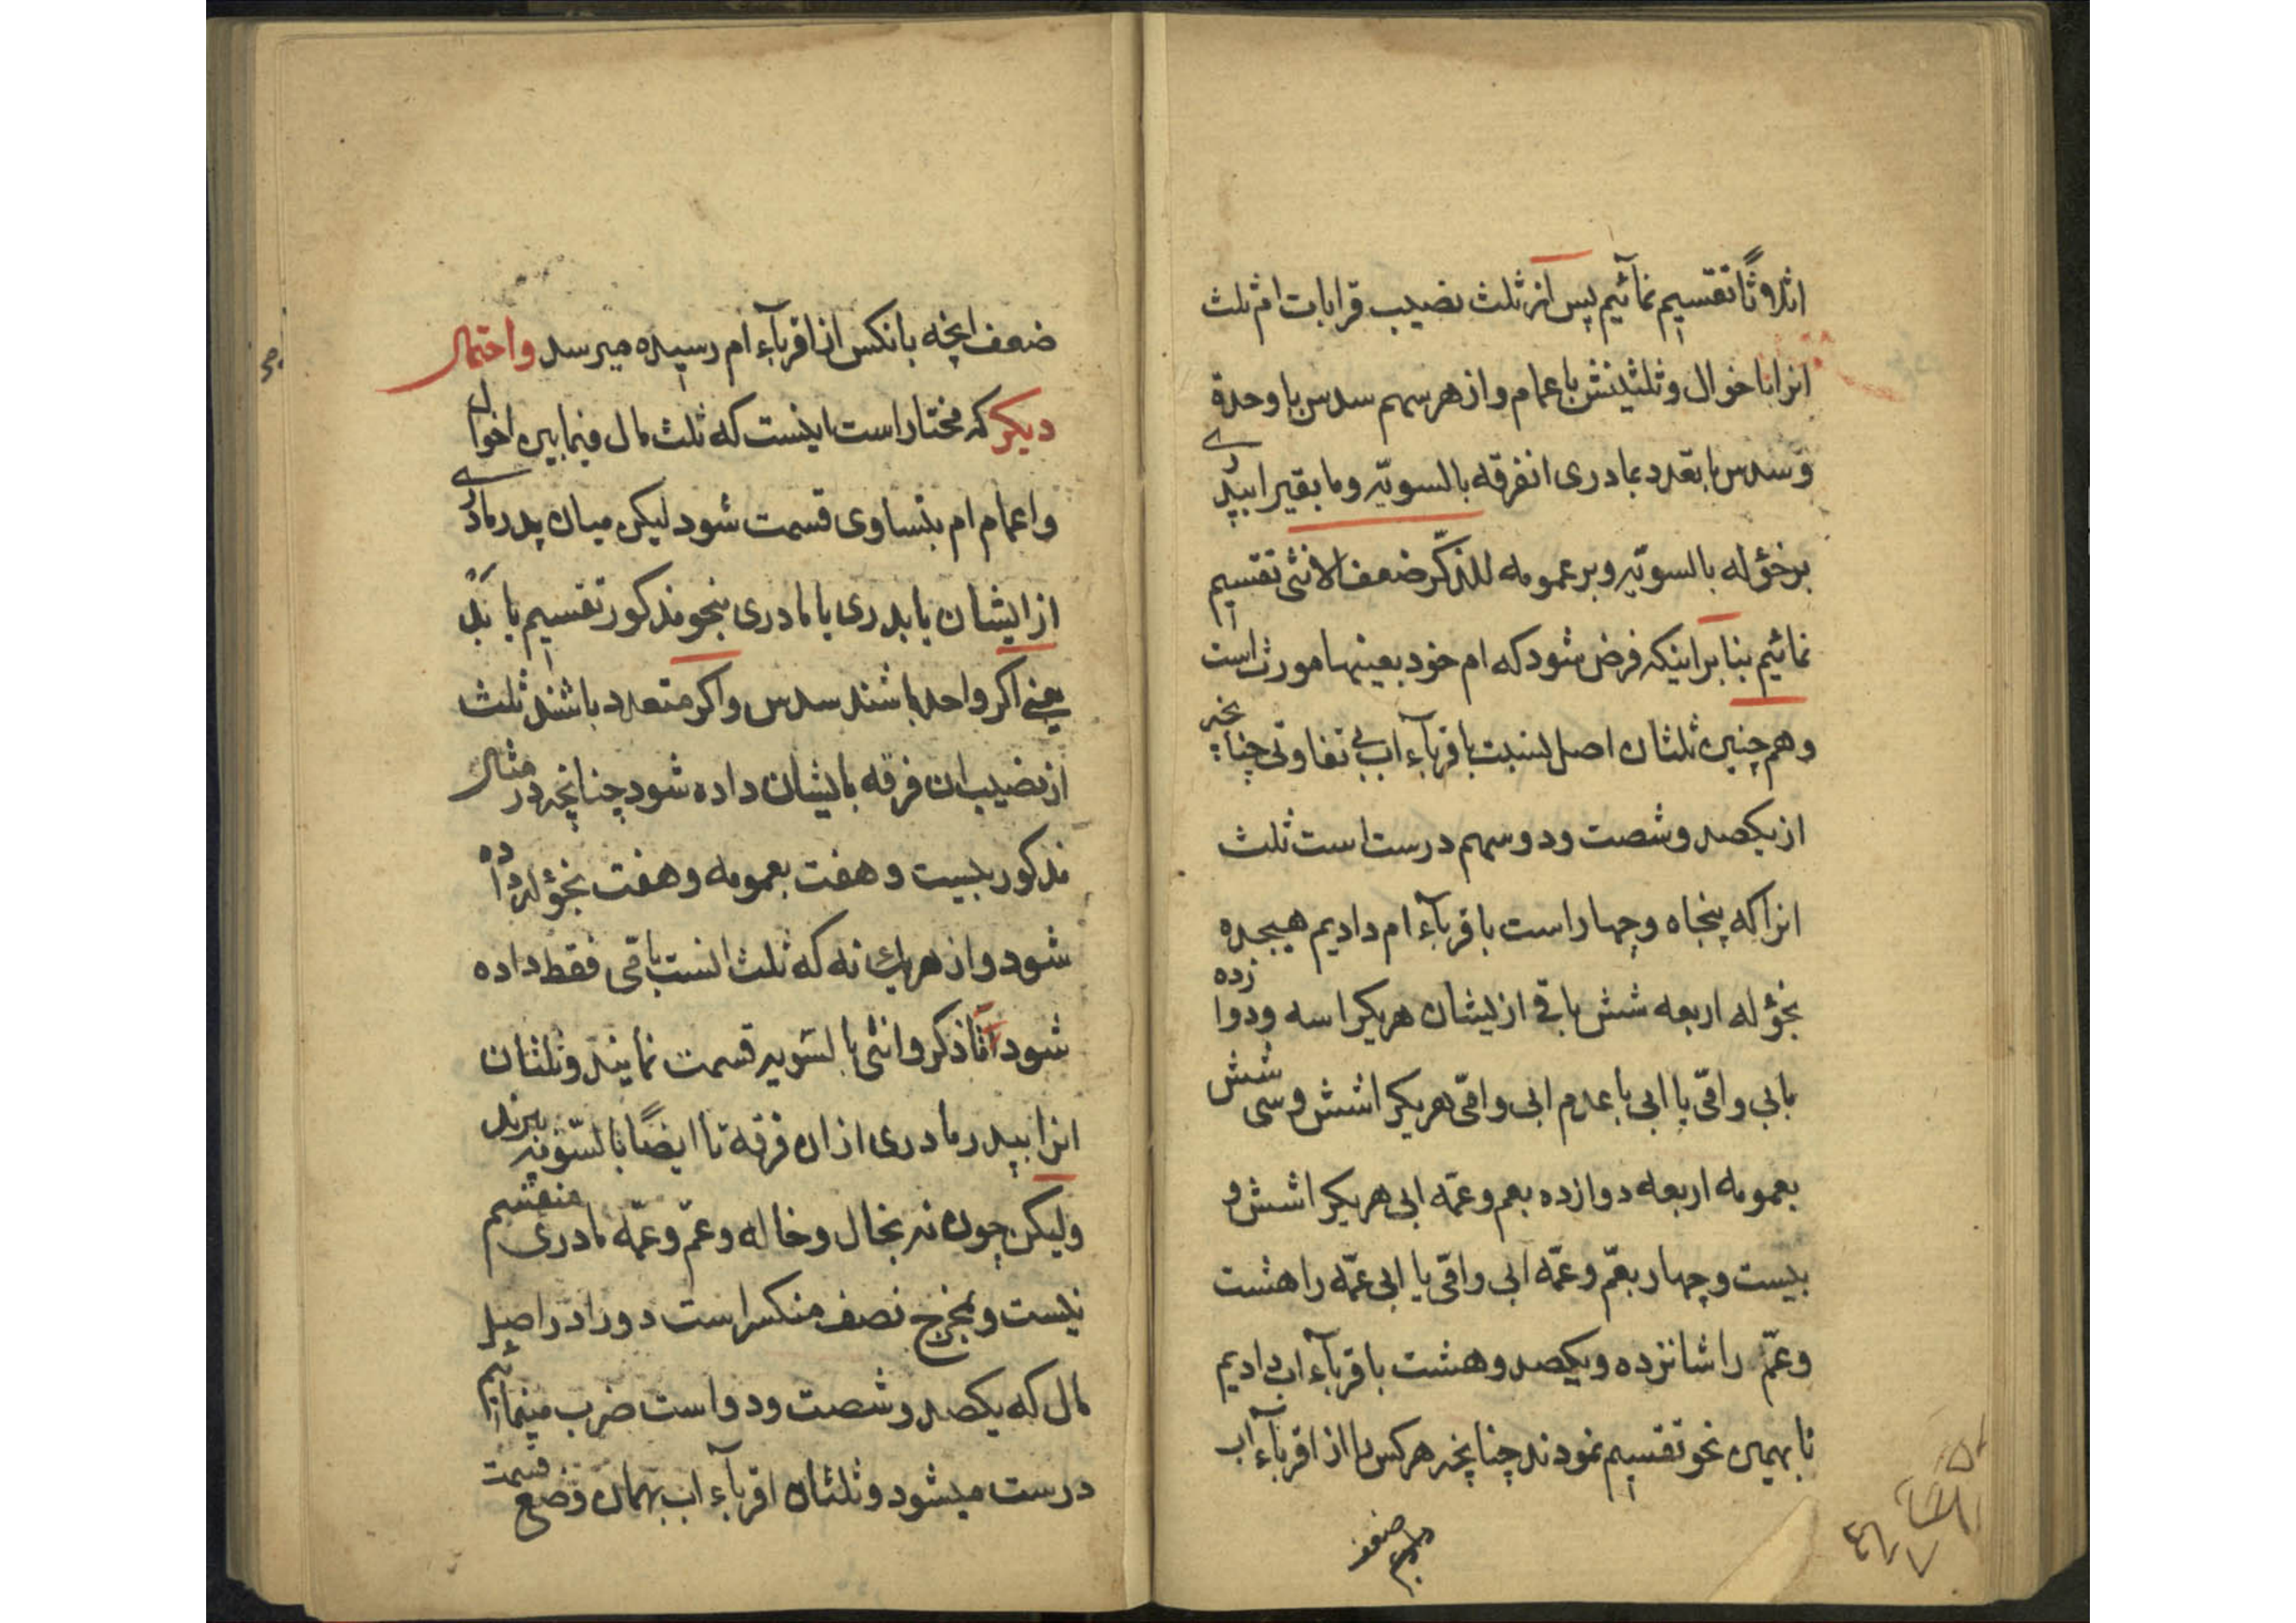 اثلاثًا تقسیم نمائیم پس از ثلث نصیب قرابات ام ثلث
انرا باخوال و ثلثینش باعمام و از هر سهم سدس با وحدة
و سدس با تعدد بمادری انفرقه بالسویّه و مابقیرا بپدری
بر خؤله بالسویّه و بر عمومه للذّکر ضعف الانثی تقسیم
نمائیم بنابر اینکه فرض شود که ام خود بعینها مورث است
و هم چنین ثلثان اصل لنسبت باقربآء اب بی تفاوتی چنانچه
از یکصد و شصت و دو سهم درست است ثلث
انرا که پنجاه و چهار است باقربآء ام دادیم هیجده
بخؤله اربعه شش باقی از لیشان هر یکرا سه و دوازده
بابی و امّی یا ابی با عدم ابی و امّی هر یکرا شش و سی شش
بعمومه اربعه دوازده بعم و عمّه ابی هر یکرا شش و
بیست و چهار بعمّ و عمّه ابی و امّی یا ابی عمّه را هشت
و عمّ را شانزده و یکصد و هشت باقربآء اب دادیم
تا بهمین نحو تقسیم نمودند چنانچه هر کس را از اقربآء اب
ضعف
ضعف انچه بانکس از اقربآء ام رسیده میرسد و احتمال
دیکر که مختار است اینست که ثلث مال فیمابین اخوال
و اعمام ام بتساوی قسمت شود لیکن میان پدر مادری
از ایشان یا پدری با مادری بنحو مذکور تقسیم یابد
یعنی اکر واحد باشند سدس و اکر متعدد باشند ثلث
از نصیب ان فرقه بایشان داده شود چنانچه در مثال
مذکور بیست و هفت بعمومه و هفت بخؤله داده
شود و از هر یک نه که ثلث انست باقی فقط داده
شود امّا ذکر و انثی بالسّویه قسمت نمایند و ثلثان
انرا بپدر مادری از ان فرقه تا ایضًا بالسّویّه ببرند
و لیکن چون نه بخال و خاله و عمّ و عمّه مادری منقسم
نیست و بمخرج نصف منکسر است دو را در اصل
مال که یکصد و شصت و دو است ضرب مینمائیم
درست میشود و ثلثان اقربآء اب بهمان وضع قسمت